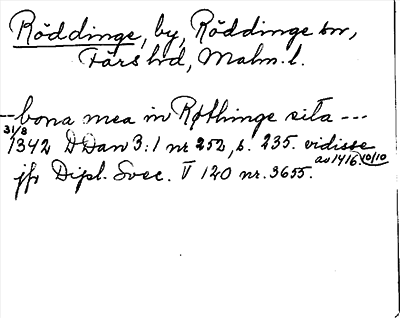 Röddinge, by, Röddinge sn,
Färs hd, Malm. l.
--bona mea in Røthinge sita ---
31/8
1342 D Dan 3:1 nr 252, s. 235. vidisse
av 1416 10/10
jfr Dipl. Svec. V 120 nr. 3655.